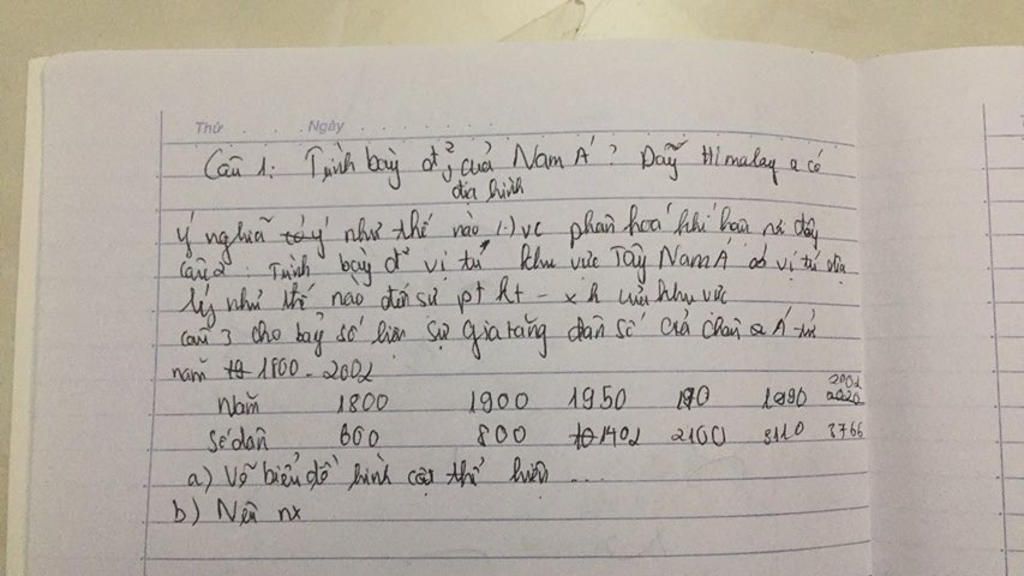 Thứ . . . . Ngày . . . .
Câu 1: Trình bày đ² cuả Nam Á ? Dãy Himalay a có
địa hình
ý nghĩa như thế nào vc phân hoá khí hậu nơi đây
câu 2 : Trình bày đ² vị trí khu vức Tây Nam Á vị trí địa
lý như thế nào đối sứ pt kt - xh cuả khu vức
câu 3 cho bảy số liện sự gia tăng dân số cuả châu Á từ
năm 1800 - 2002
Năm 1800 1900 1950 1990 2002
Số dân 600 800 1402 2100 3110 3766
a) Vẽ biểu đồ hình cột thể hiện ...
b) Nêu nx